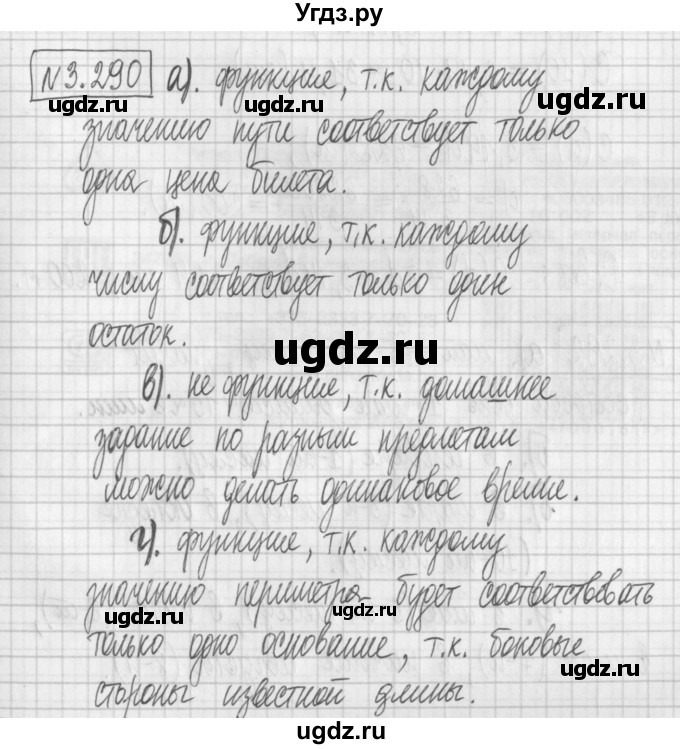 Угдз.ру
№3.290 а). функция, т.к. каждому
ugdz.ru ugdz.ru
значению пути соответствует только
одна цена билета.
б). функция, т.к. каждому
числу соответствует только один
остаток.
ugdz.ru
ugdz.ru
в). не функция, т.к. домашнее
задание по разным предметам
можно делать одинаковое время.
г). функция, т.к. каждому
значению периметра будет соответствовать
ugdz.ru ugdz.ru
только одно основание, т.к. боковые
стороны известной длины.
ugdz.ru